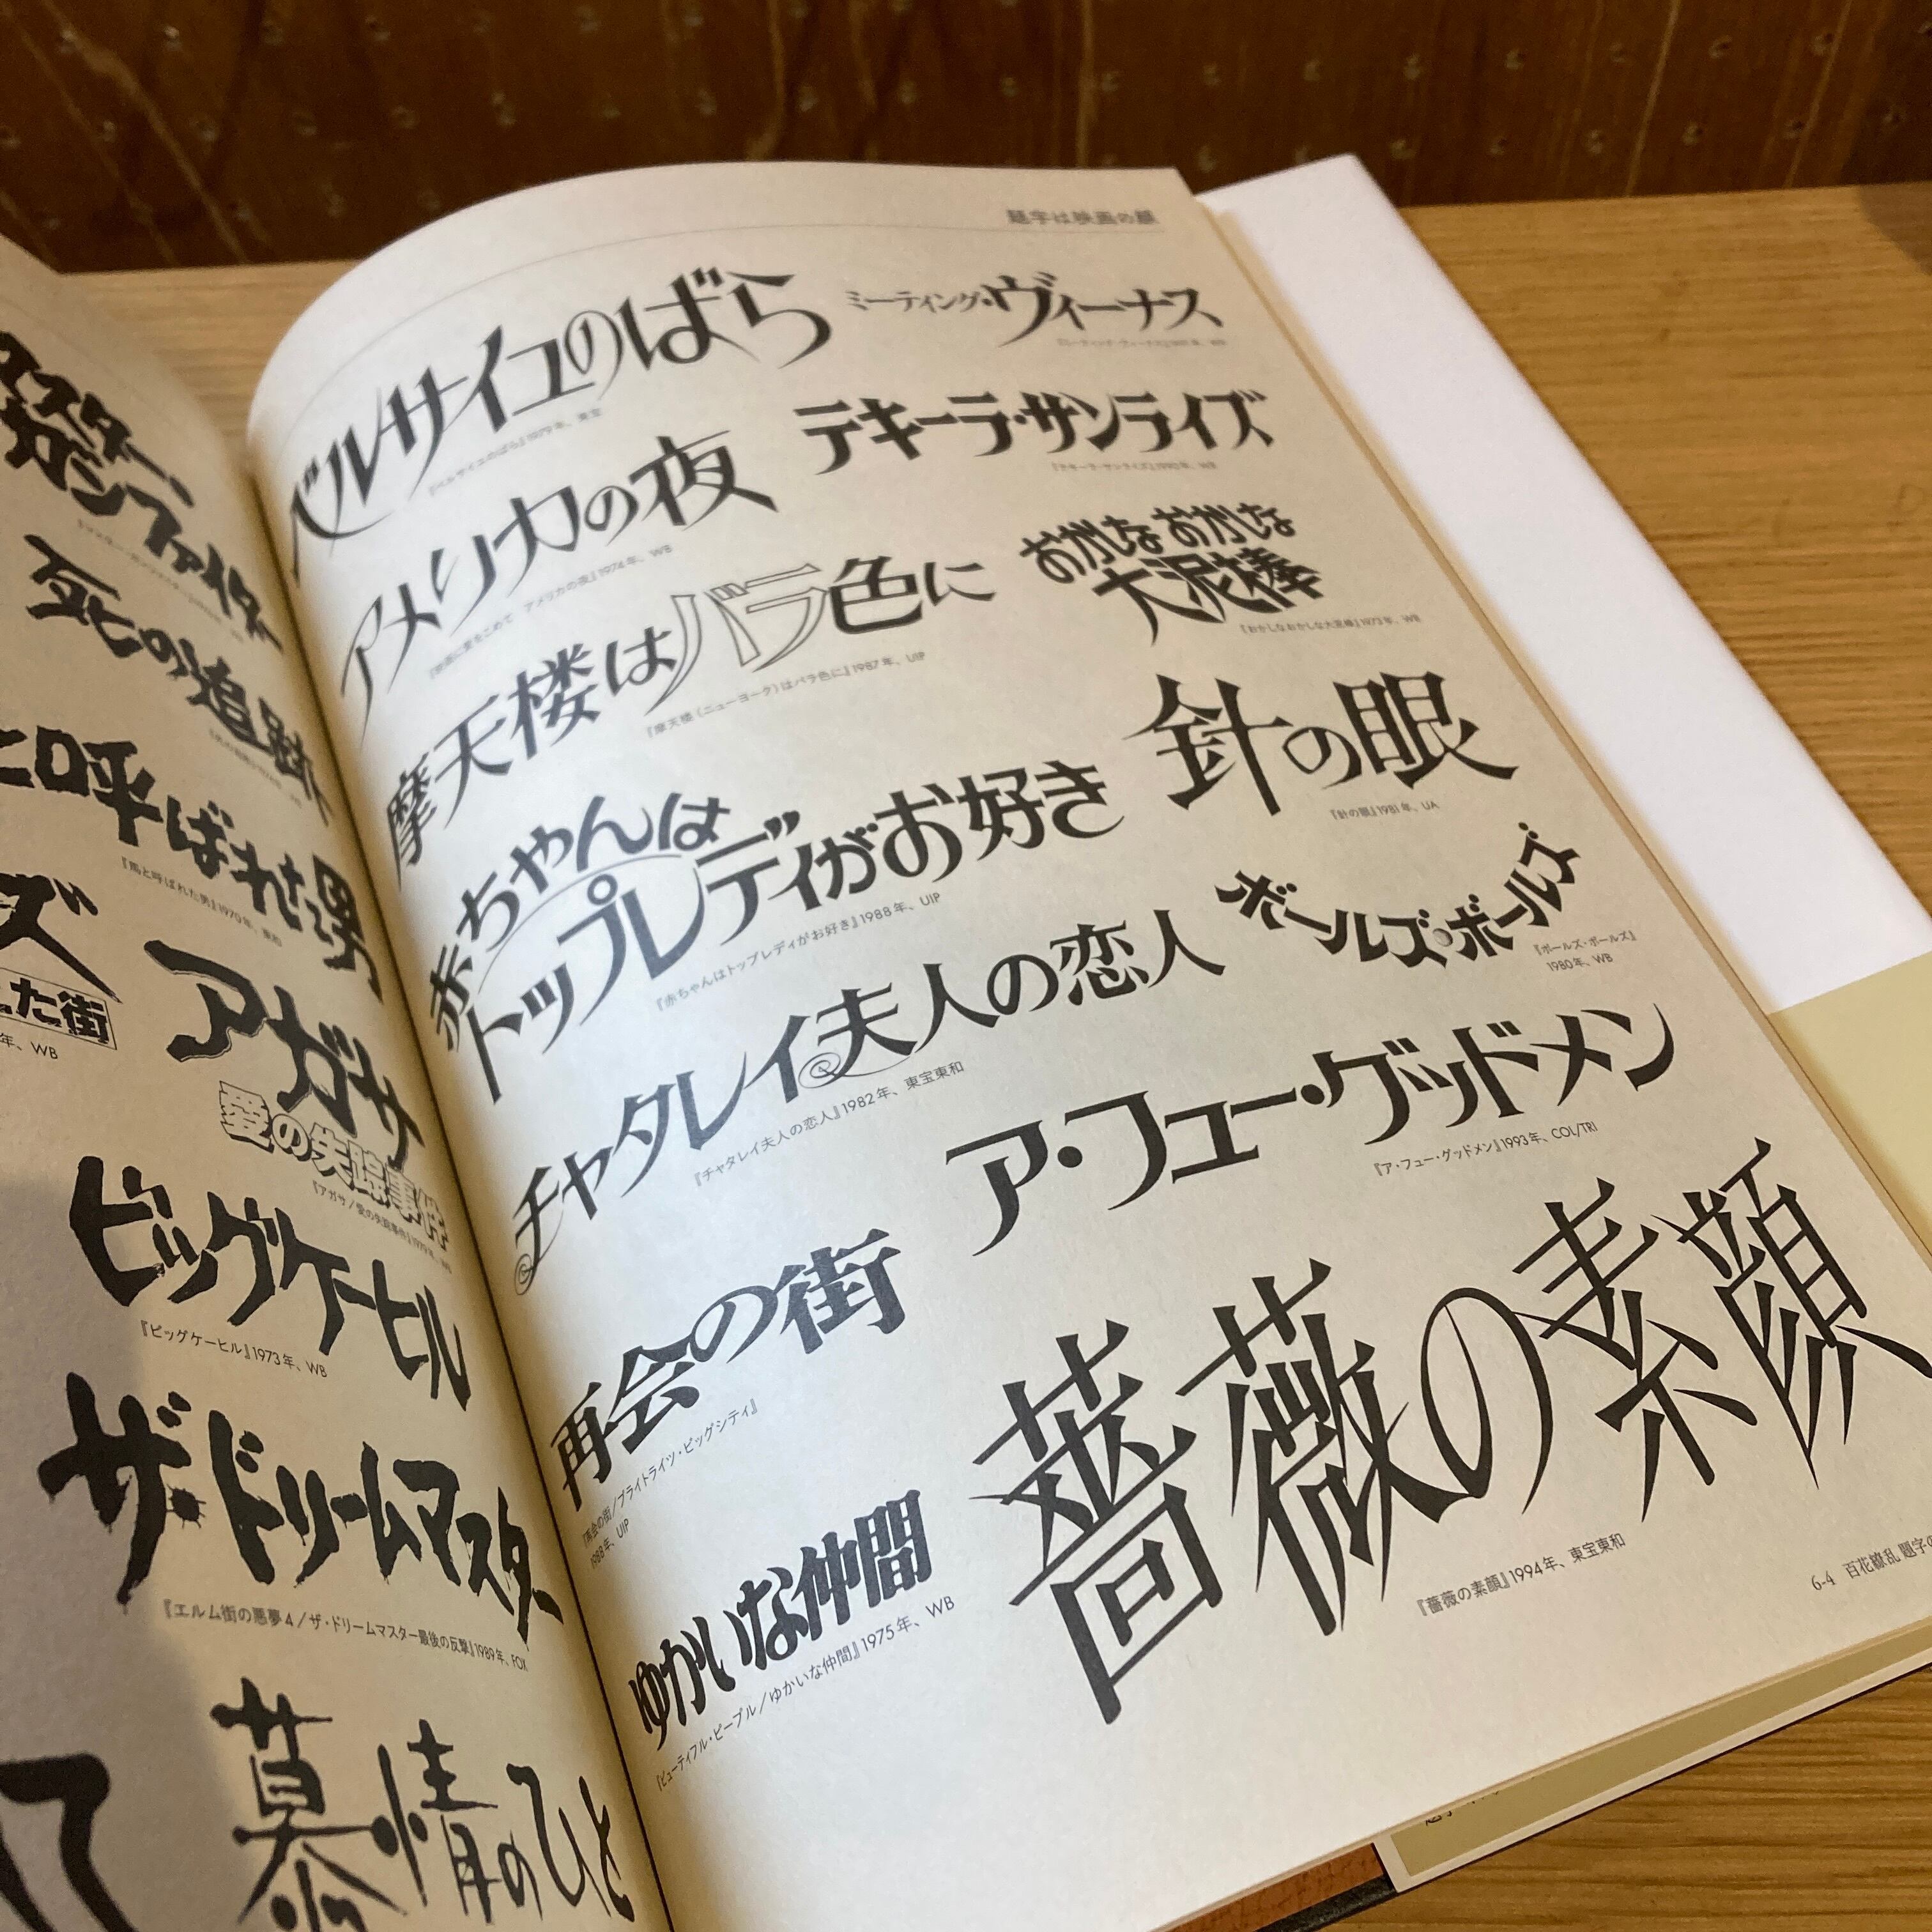 死の追跡
と呼ばれた男
『馬と呼ばれた男』1970年、東和
ズ
した街
年、WB
アガサ
愛の失踪事件
『アガサ/愛の失踪事件』1979年、WB
ビッグケーヒル
『ビッグケーヒル』1973年、WB
ザ・ドリームマスター
『エルム街の悪夢4/ザ・ドリームマスター最後の反撃』1989年、FOX
慕情のひと
て
題字は映画の顔
ベルサイユのばら
『ベルサイユのばら』1979年、東宝
ミーティング・ヴィーナス
アメリカの夜
『映画に愛をこめて アメリカの夜』1974年、WB
テキーラ・サンライズ
摩天楼はバラ色に
『摩天楼(ニューヨーク)はバラ色に』1987年、UIP
おかしなおかしな
大泥棒
『おかしなおかしな大泥棒』1973年、WB
赤ちゃんは
トップレディがお好き
『赤ちゃんはトップレディがお好き』1988年、UIP
針の眼
『針の眼』1981年、UA
チャタレイ夫人の恋人
『チャタレイ夫人の恋人』1982年、東宝東和
ボールズ・ボールズ
『ボールズ・ボールズ』
1980年、WB
再会の街
『再会の街/ブライトライツ・ビッグシティ』
1988年、UIP
ア・フュー・グッドメン
『ア・フュー・グッドメン』1993年、COL/TRI
ゆかいな仲間
『ビューティフル・ピープル/ゆかいな仲間』1975年、WB
薔薇の素顔
『薔薇の素顔』1994年、東宝東和
6-4 百花繚乱 題字の